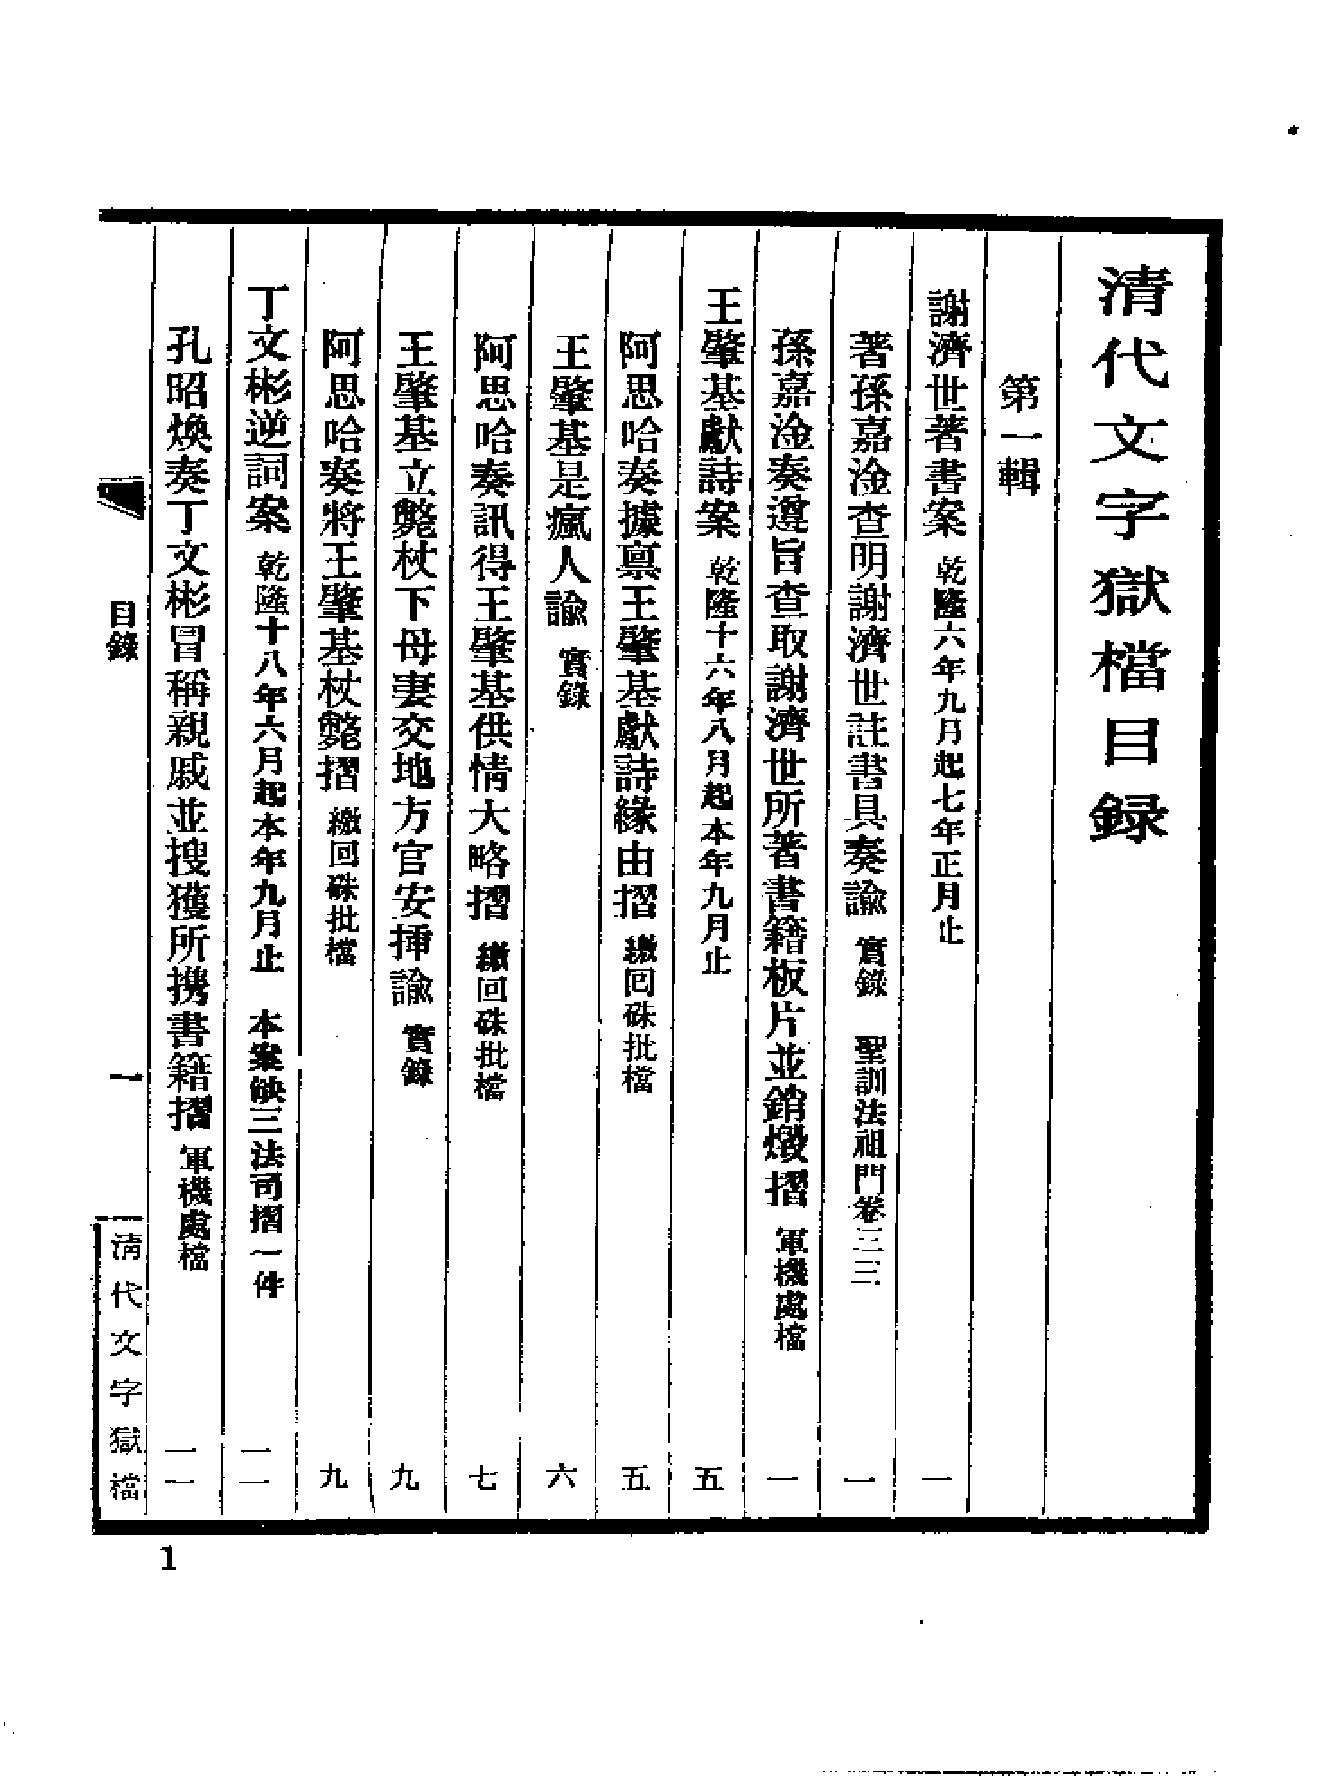 清代文字獄檔目録
第一輯
謝濟世著書案 乾隆六年九月起七年正月止 一
著孫嘉淦查明謝濟世註書具奏諭 實錄 聖訓法祖門卷二三三 一
孫嘉淦奏遵旨查取謝濟世所著書籍板片並銷燬摺 軍機處檔 一
王肇基獻詩案 乾隆十六年八月起本年九月止 五
阿思哈奏據禀王肇基獻詩緣由摺 繳回硃批檔 五
王肇基是瘋人諭 實錄 六
阿思哈奏訊得王肇基供情大略摺 繳回硃批檔 七
王肇基立斃杖下母妻交地方官安揷諭 實錄 九
阿思哈奏將王肇基杖斃摺 繳回硃批檔 九
丁文彬逆詞案 乾隆十八年六月起本年九月止 本案缺三法司摺一件 一一
孔昭煥奏丁文彬冒稱親戚並搜獲所携書籍摺 軍機處檔 一一
目錄
一
清代文字獄檔
1